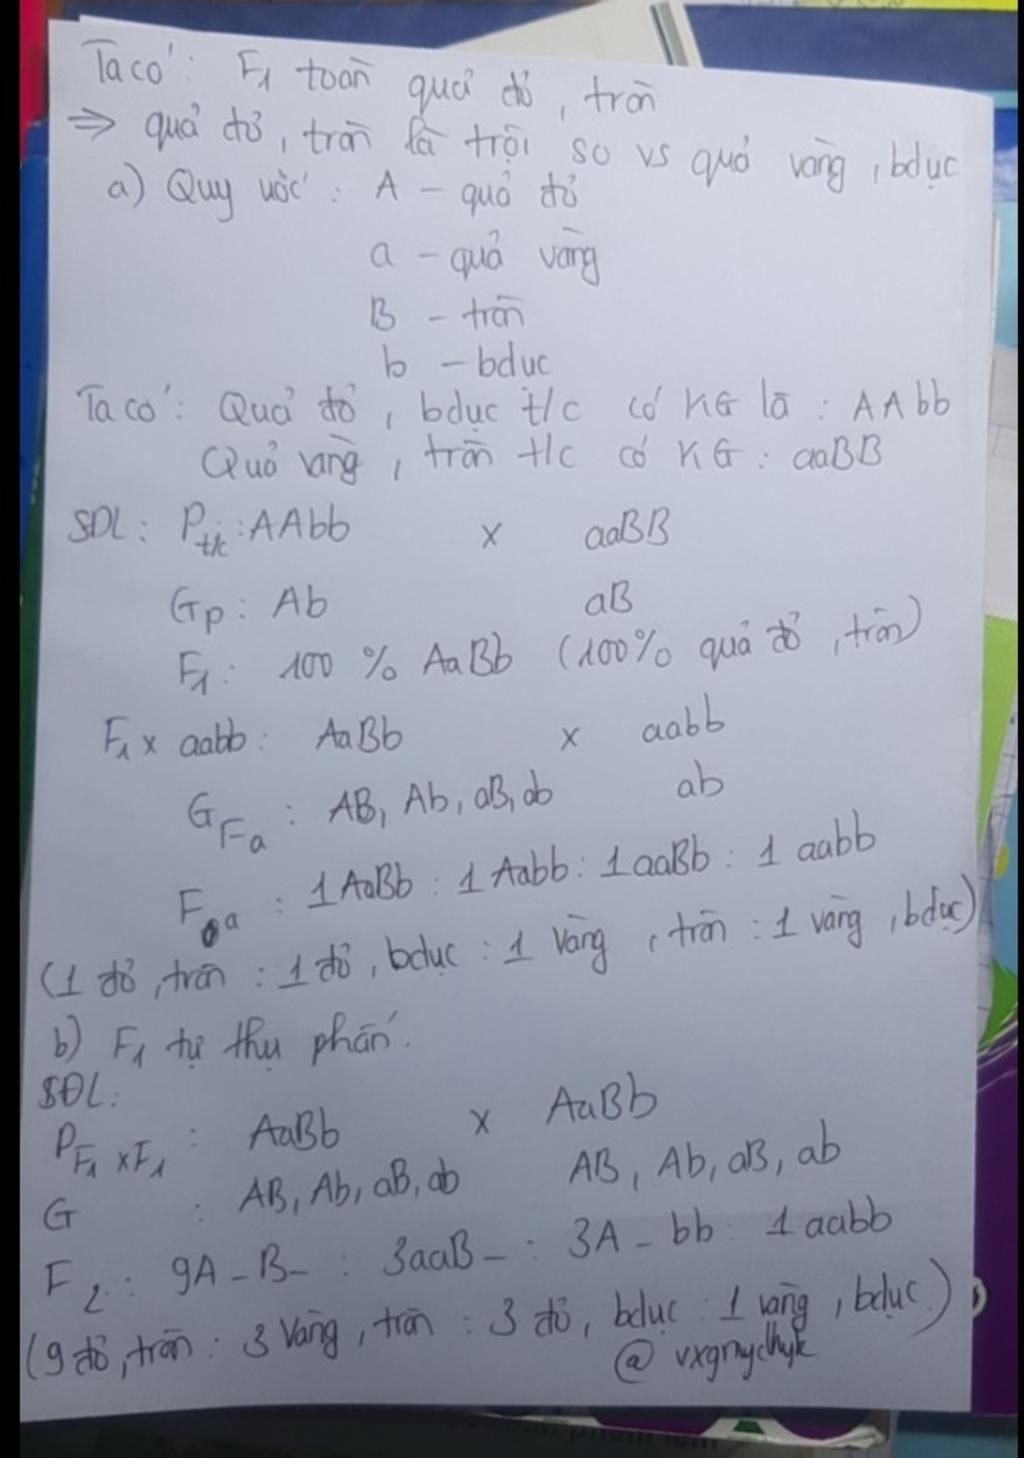 Ta có: F1 toàn quả đỏ, tròn
⇒ quả đỏ, tròn là trội so vs quả vàng, bdục
a) Quy ước: A - quả đỏ
a - quả vàng
B - tròn
b - bdục
Ta có: Quả đỏ, bdục t/c có KG là: AAbb
Quả vàng, tròn t/c có KG: aaBB
SDL: Pt/c: AAbb x aaBB
Gp: Ab aB
F1: 100% AaBb (100% quả đỏ, tròn)
F1 x aabb: AaBb x aabb
GFa: AB, Ab, aB, ab ab
Fa: 1AaBb : 1Aabb : 1aaBb : 1 aabb
(1 đỏ, tròn : 1 đỏ, bdục : 1 vàng, tròn : 1 vàng, bdục)
b) F1 tự thụ phấn.
SĐL:
PF1 x F1: AaBb x AaBb
G : AB, Ab, aB, ab AB, Ab, aB, ab
F2: 9A-B- : 3aaB- : 3A-bb : 1 aabb
(9 đỏ, tròn : 3 vàng, tròn : 3 đỏ, bdục : 1 vàng, bdục)